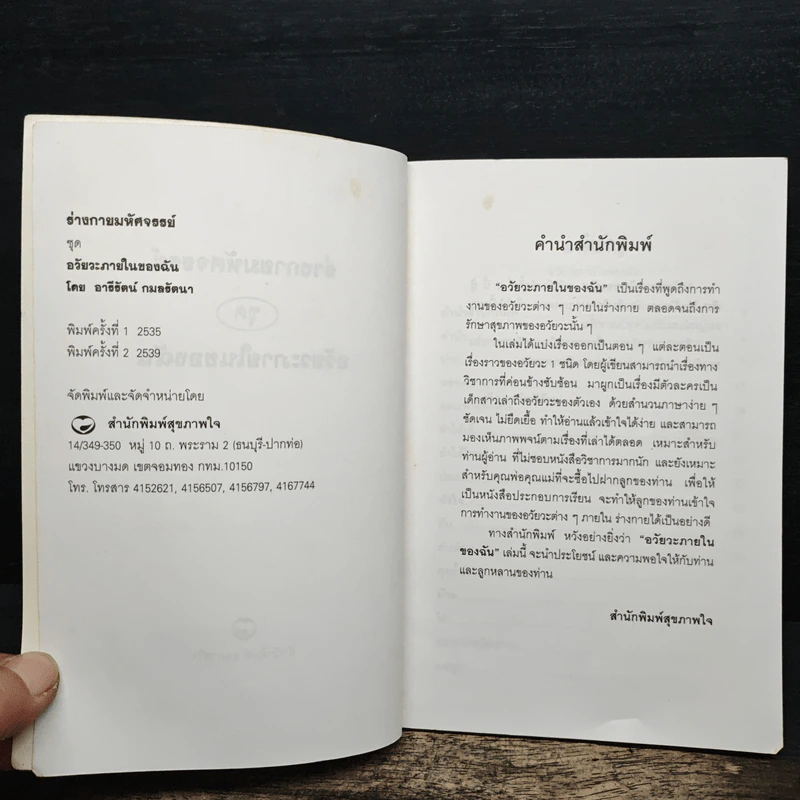 ร่างกายมหัศจรรย์
ชุด
อวัยวะภายในของฉัน
โดย อารีรัตน์ กมลรัตนา
พิมพ์ครั้งที่ 1 2535
พิมพ์ครั้งที่ 2 2539
จัดพิมพ์และจัดจำหน่ายโดย
สำนักพิมพ์สุขภาพใจ
14/349-350 หมู่ 10 ถ. พระราม 2 (ธนบุรี-ปากท่อ)
แขวงบางมด เขตจอมทอง กทม.10150
โทร. โทรสาร 4152621, 4156507, 4156797, 4167744
คำนำสำนักพิมพ์
“อวัยวะภายในของฉัน” เป็นเรื่องที่พูดถึงการทำ
งานของอวัยวะต่าง ๆ ภายในร่างกาย ตลอดจนถึงการ
รักษาสุขภาพของอวัยวะนั้น ๆ
ในเล่มได้แบ่งเรื่องออกเป็นตอน ๆ แต่ละตอนเป็น
เรื่องราวของอวัยวะ 1 ชนิด โดยผู้เขียนสามารถนำเรื่องทาง
วิชาการที่ค่อนข้างซับซ้อน มาผูกเป็นเรื่องมีตัวละครเป็น
เด็กสาวเล่าถึงอวัยวะของตัวเอง ด้วยสำนวนภาษาง่าย ๆ
ชัดเจน ไม่ยืดเยื้อ ทำให้อ่านแล้วเข้าใจได้ง่าย และสามารถ
มองเห็นภาพพจน์ตามเรื่องที่เล่าได้ตลอด เหมาะสำหรับ
ท่านผู้อ่าน ที่ไม่ชอบหนังสือวิชาการมากนัก และยังเหมาะ
สำหรับคุณพ่อคุณแม่ที่จะซื้อไปฝากลูกของท่าน เพื่อให้
เป็นหนังสือประกอบการเรียน จะทำให้ลูกของท่านเข้าใจ
การทำงานของอวัยวะต่าง ๆ ภายใน ร่างกายได้เป็นอย่างดี
ทางสำนักพิมพ์ หวังอย่างยิ่งว่า “อวัยวะภายใน
ของฉัน” เล่มนี้ จะนำประโยชน์ และความพอใจให้กับท่าน
และลูกหลานของท่าน
สำนักพิมพ์สุขภาพใจ